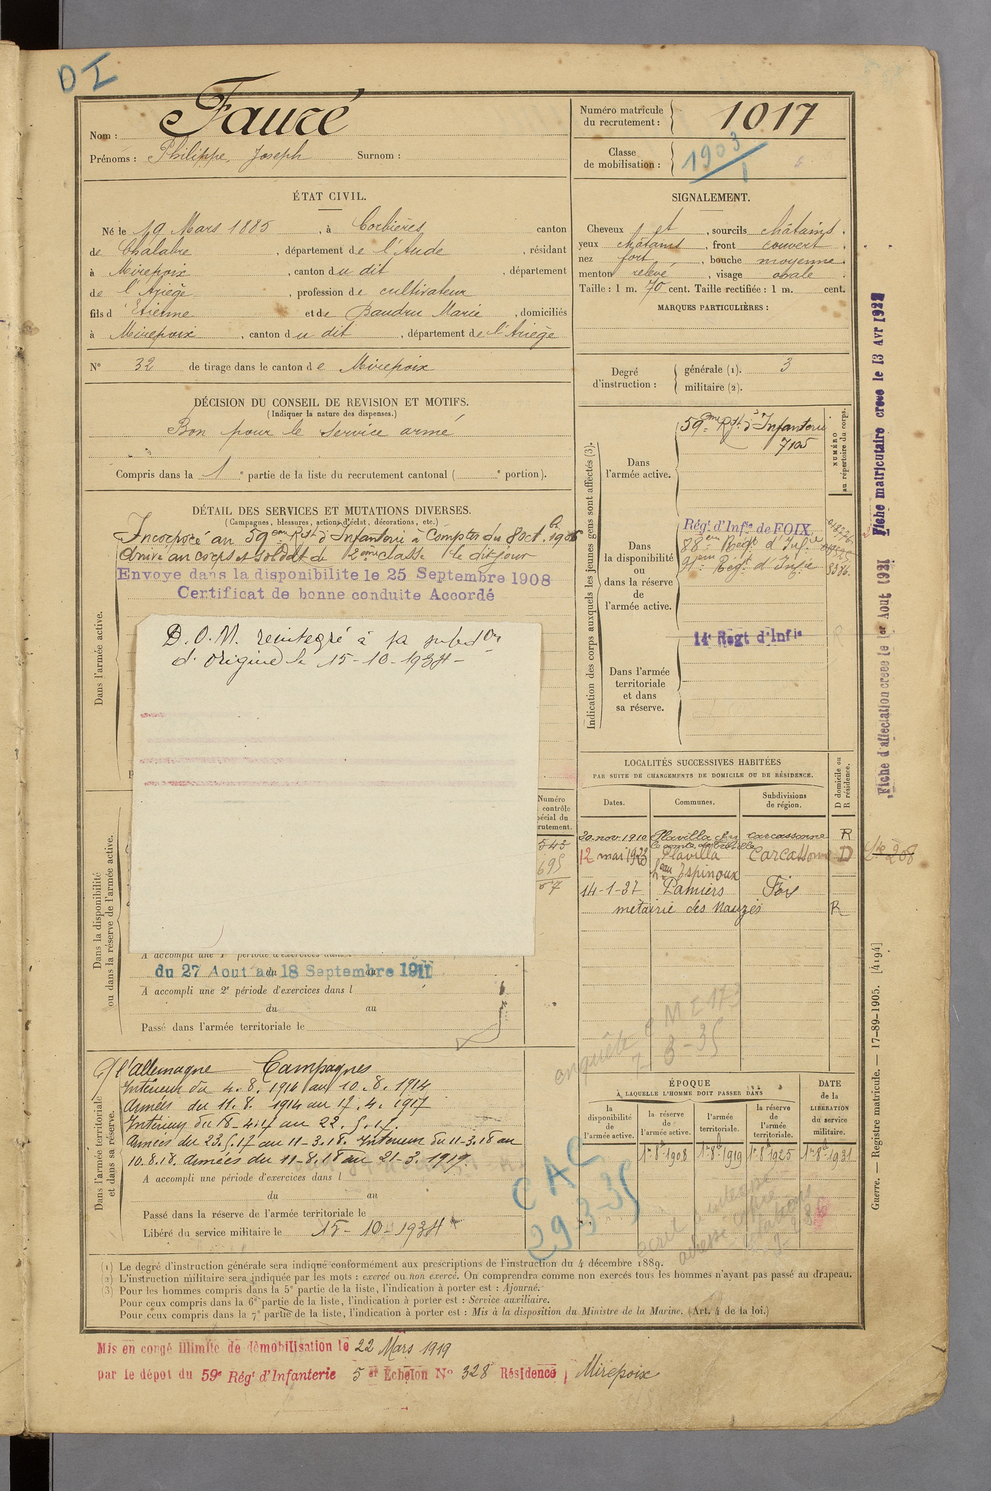 DI
Nom : Fauré
Prénoms : Philippe, Joseph Surnom :
Numéro matricule du recrutement : 1017
Classe de mobilisation : 1903
ÉTAT CIVIL.
Né le 19 Mars 1885, à Corbières canton
de Chalabre, département de l'Aude, résidant
à Mirepoix, canton du dit, département
de l'Ariège, profession de cultivateur
fils d'Etienne et de Baudru Marie, domiciliés
à Mirepoix, canton du dit, département de l'Ariège
N° 32 de tirage dans le canton de Mirepoix
SIGNALEMENT.
Cheveux et, sourcils châtains.
yeux châtains, front couvert
nez fort, bouche moyenne
menton relevé, visage ovale
Taille : 1 m. 70 cent. Taille rectifiée : 1 m. cent.
MARQUES PARTICULIÈRES :
Degré d'instruction : générale (1). 3
militaire (2).
DÉCISION DU CONSEIL DE REVISION ET MOTIFS.
(Indiquer la nature des dispenses.)
Bon pour le service armé
Compris dans la 1e partie de la liste du recrutement cantonal ( e portion).
DÉTAIL DES SERVICES ET MUTATIONS DIVERSES.
(Campagnes, blessures, actions d'éclat, décorations, etc.)
Incorporé au 59eme Regt d'Infanterie à Compter du 8 Octbre 1906
Arrivé au corps et soldat de 2eme classe le dit jour
Envoyé dans la disponibilite le 25 Septembre 1908
Certificat de bonne conduite Accordé
D.O.M. reintegré à sa subdon
d'origine le 15-10-1934-
Dans l'armée active.
Dans la disponibilité ou dans la réserve de l'armée active.
Numéro
contrôle
spécial du
recrutement.
543
695
57
A accompli une 1e période d'exercices dans
du 27 Aout au 18 Septembre 1911
A accompli une 2e période d'exercices dans l
du au
Passé dans l'armée territoriale le
Indication des corps auxquels les jeunes gens sont affectés (3).
NUMÉRO au répertoire du corps.
Dans l'armée active.
59eme Rgt d'Infanterie
7105
Dans la disponibilité ou dans la réserve de l'armée active.
Régt d'Infie de FOIX
88eme Regt d'Infie
Regt d'Infie
14e Regt d'Infie
Dans l'armée territoriale et dans sa réserve.
LOCALITÉS SUCCESSIVES HABITÉES
PAR SUITE DE CHANGEMENTS DE DOMICILE OU DE RÉSIDENCE.
Dates. Communes. Subdivisions de région. D domicile ou R résidence.
30 nov. 1910 Plavilla Carcassonne R
12 mai 1923 Plavilla Carcassonne D
heau Espinoux
14-1-37 Pamiers Foix
metairie des Nauzes R
enquête CMI 173
7-3-35
Dans l'armée territoriale et dans sa réserve.
C/ l'allemagne Campagnes
Intérieur du 4.8.1914 au 10.8.1914
Armées du 11.8.1914 au 17.4.1917
Intérieur du 18-4-17 au 22.5.17.
Armées du 23.5.17 au 11-3.18. Intérieur du 11-3.18 au
10.8.18. Armées du 11-8.18 au 21-3.1919.
A accompli une période d'exercices dans l
du au
Passé dans la réserve de l'armée territoriale le
Libéré du service militaire le 15-10-1934
CAC
29 3-35
ÉPOQUE
À LAQUELLE L'HOMME DOIT PASSER DANS
DATE de la LIBÉRATION du service militaire.
la disponibilité de l'armée active. la réserve de l'armée active. l'armée territoriale. la réserve de l'armée territoriale.
1er 8bre 1908 1er 8b 1919 1er 8b 1925 1er 8b 1931
(1) Le degré d'instruction générale sera indiqué conformément aux prescriptions de l'instruction du 4 décembre 1889.
(2) L'instruction militaire sera indiquée par les mots : exercé ou non exercé. On comprendra comme non exercés tous les hommes n'ayant pas passé au drapeau.
(3) Pour les hommes compris dans la 5e partie de la liste, l'indication à porter est : Ajourné.
Pour ceux compris dans la 6e partie de la liste, l'indication à porter est : Service auxiliaire.
Pour ceux compris dans la 7e partie de la liste, l'indication à porter est : Mis à la disposition du Ministre de la Marine. (Art. 4 de la loi.)
Mis en congé illimité de démobilisation le 22 Mars 1919
par le dépot du 59e Régt d'Infanterie 5 et Echelon N° 328 Résidence, Mirepoix
Fiche d'affectation creee le 1er Aout 1931
Fiche matriculaire creee le 13 Avr 1932
Guerre. — Registre matricule. — 17-89-1905. [4194]